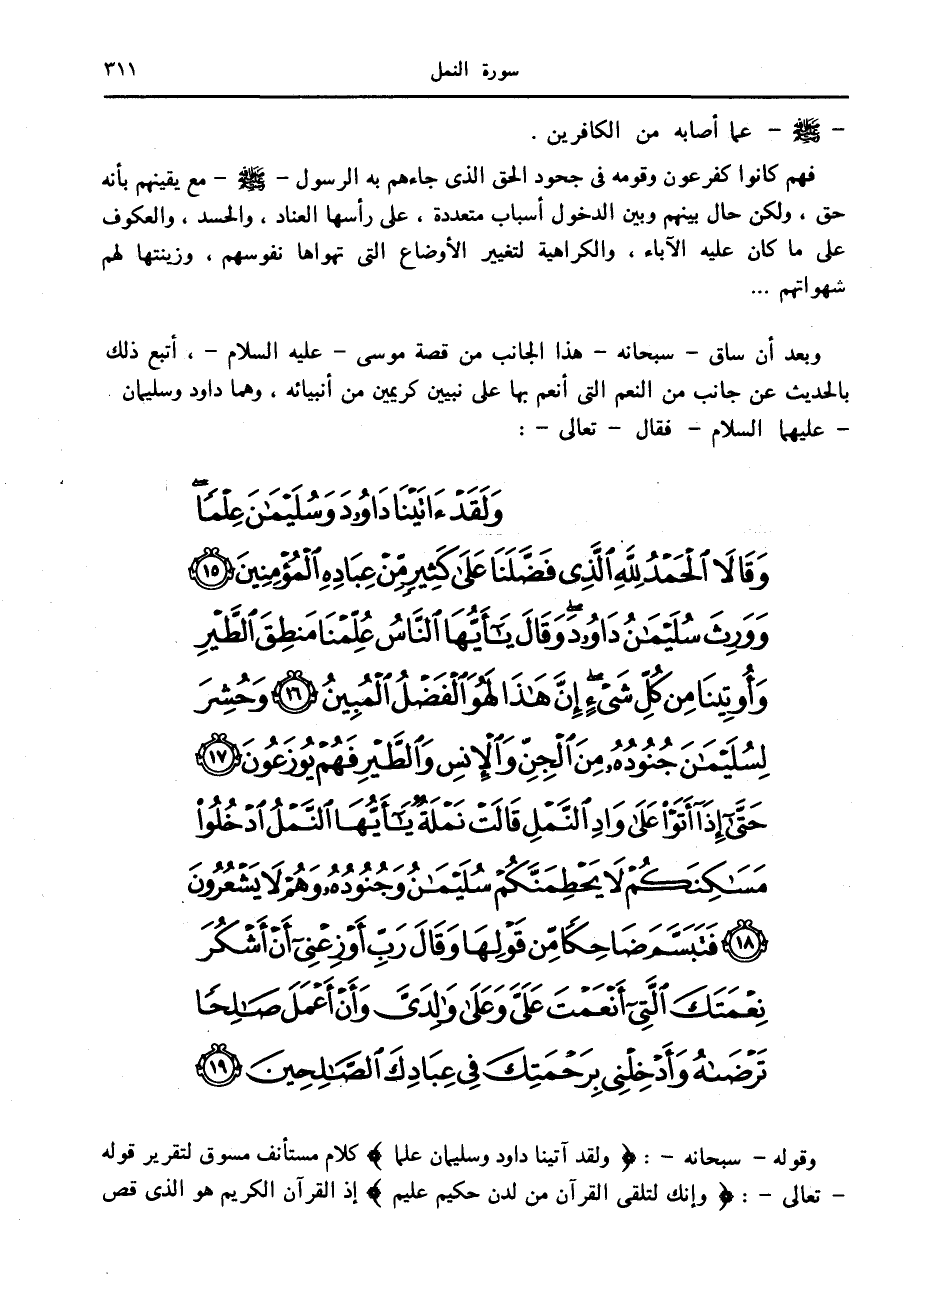 سورة النمل ٣١١
– ﷺ – عما أصابه من الكافرين .
فهم كانوا كفرعون وقومه فى جحود الحق الذى جاءهم به الرسول – ﷺ – مع يقينهم بأنه
حق ، ولكن حال بينهم وبين الدخول أسباب متعددة ، على رأسها العناد ، والحسد ، والعكوف
على ما كان عليه الآباء ، والكراهية لتغيير الأوضاع التى تهواها نفوسهم ، وزينتها لهم
شهواتهم ...
وبعد أن ساق – سبحانه – هذا الجانب من قصة موسى – عليه السلام – ، أتبع ذلك
بالحديث عن جانب من النعم التى أنعم بها على نبيين كريمين من أنبيائه ، وهما داود وسليمان
– عليهما السلام – فقال – تعالى – :
وَلَقَدْ ءَاتَيْنَا دَاوُۥدَ وَسُلَيْمَٰنَ عِلْمًاۖ
وَقَالَا ٱلْحَمْدُ لِلَّهِ ٱلَّذِى فَضَّلَنَا عَلَىٰ كَثِيرٍ مِّنْ عِبَادِهِ ٱلْمُؤْمِنِينَ ﴿١٥﴾
وَوَرِثَ سُلَيْمَٰنُ دَاوُۥدَۖ وَقَالَ يَٰٓأَيُّهَا ٱلنَّاسُ عُلِّمْنَا مَنطِقَ ٱلطَّيْرِ
وَأُوتِينَا مِن كُلِّ شَىْءٍۖ إِنَّ هَٰذَا لَهُوَ ٱلْفَضْلُ ٱلْمُبِينُ ﴿١٦﴾ وَحُشِرَ
لِسُلَيْمَٰنَ جُنُودُهُۥ مِنَ ٱلْجِنِّ وَٱلْإِنسِ وَٱلطَّيْرِ فَهُمْ يُوزَعُونَ ﴿١٧﴾
حَتَّىٰٓ إِذَآ أَتَوْا۟ عَلَىٰ وَادِ ٱلنَّمْلِ قَالَتْ نَمْلَةٌ يَٰٓأَيُّهَا ٱلنَّمْلُ ٱدْخُلُوا۟
مَسَٰكِنَكُمْ لَا يَحْطِمَنَّكُمْ سُلَيْمَٰنُ وَجُنُودُهُۥ وَهُمْ لَا يَشْعُرُونَ
﴿١٨﴾ فَتَبَسَّمَ ضَاحِكًا مِّن قَوْلِهَا وَقَالَ رَبِّ أَوْزِعْنِىٓ أَنْ أَشْكُرَ
نِعْمَتَكَ ٱلَّتِىٓ أَنْعَمْتَ عَلَىَّ وَعَلَىٰ وَٰلِدَىَّ وَأَنْ أَعْمَلَ صَٰلِحًا
تَرْضَىٰهُ وَأَدْخِلْنِى بِرَحْمَتِكَ فِى عِبَادِكَ ٱلصَّٰلِحِينَ ﴿١٩﴾
وقوله – سبحانه – : ﴿ ولقد آتينا داود وسليمان علما ﴾ كلام مستأنف مسوق لتقرير قوله
– تعالى – : ﴿ وإنك لتلقى القرآن من لدن حكيم عليم ﴾ إذ القرآن الكريم هو الذى قص